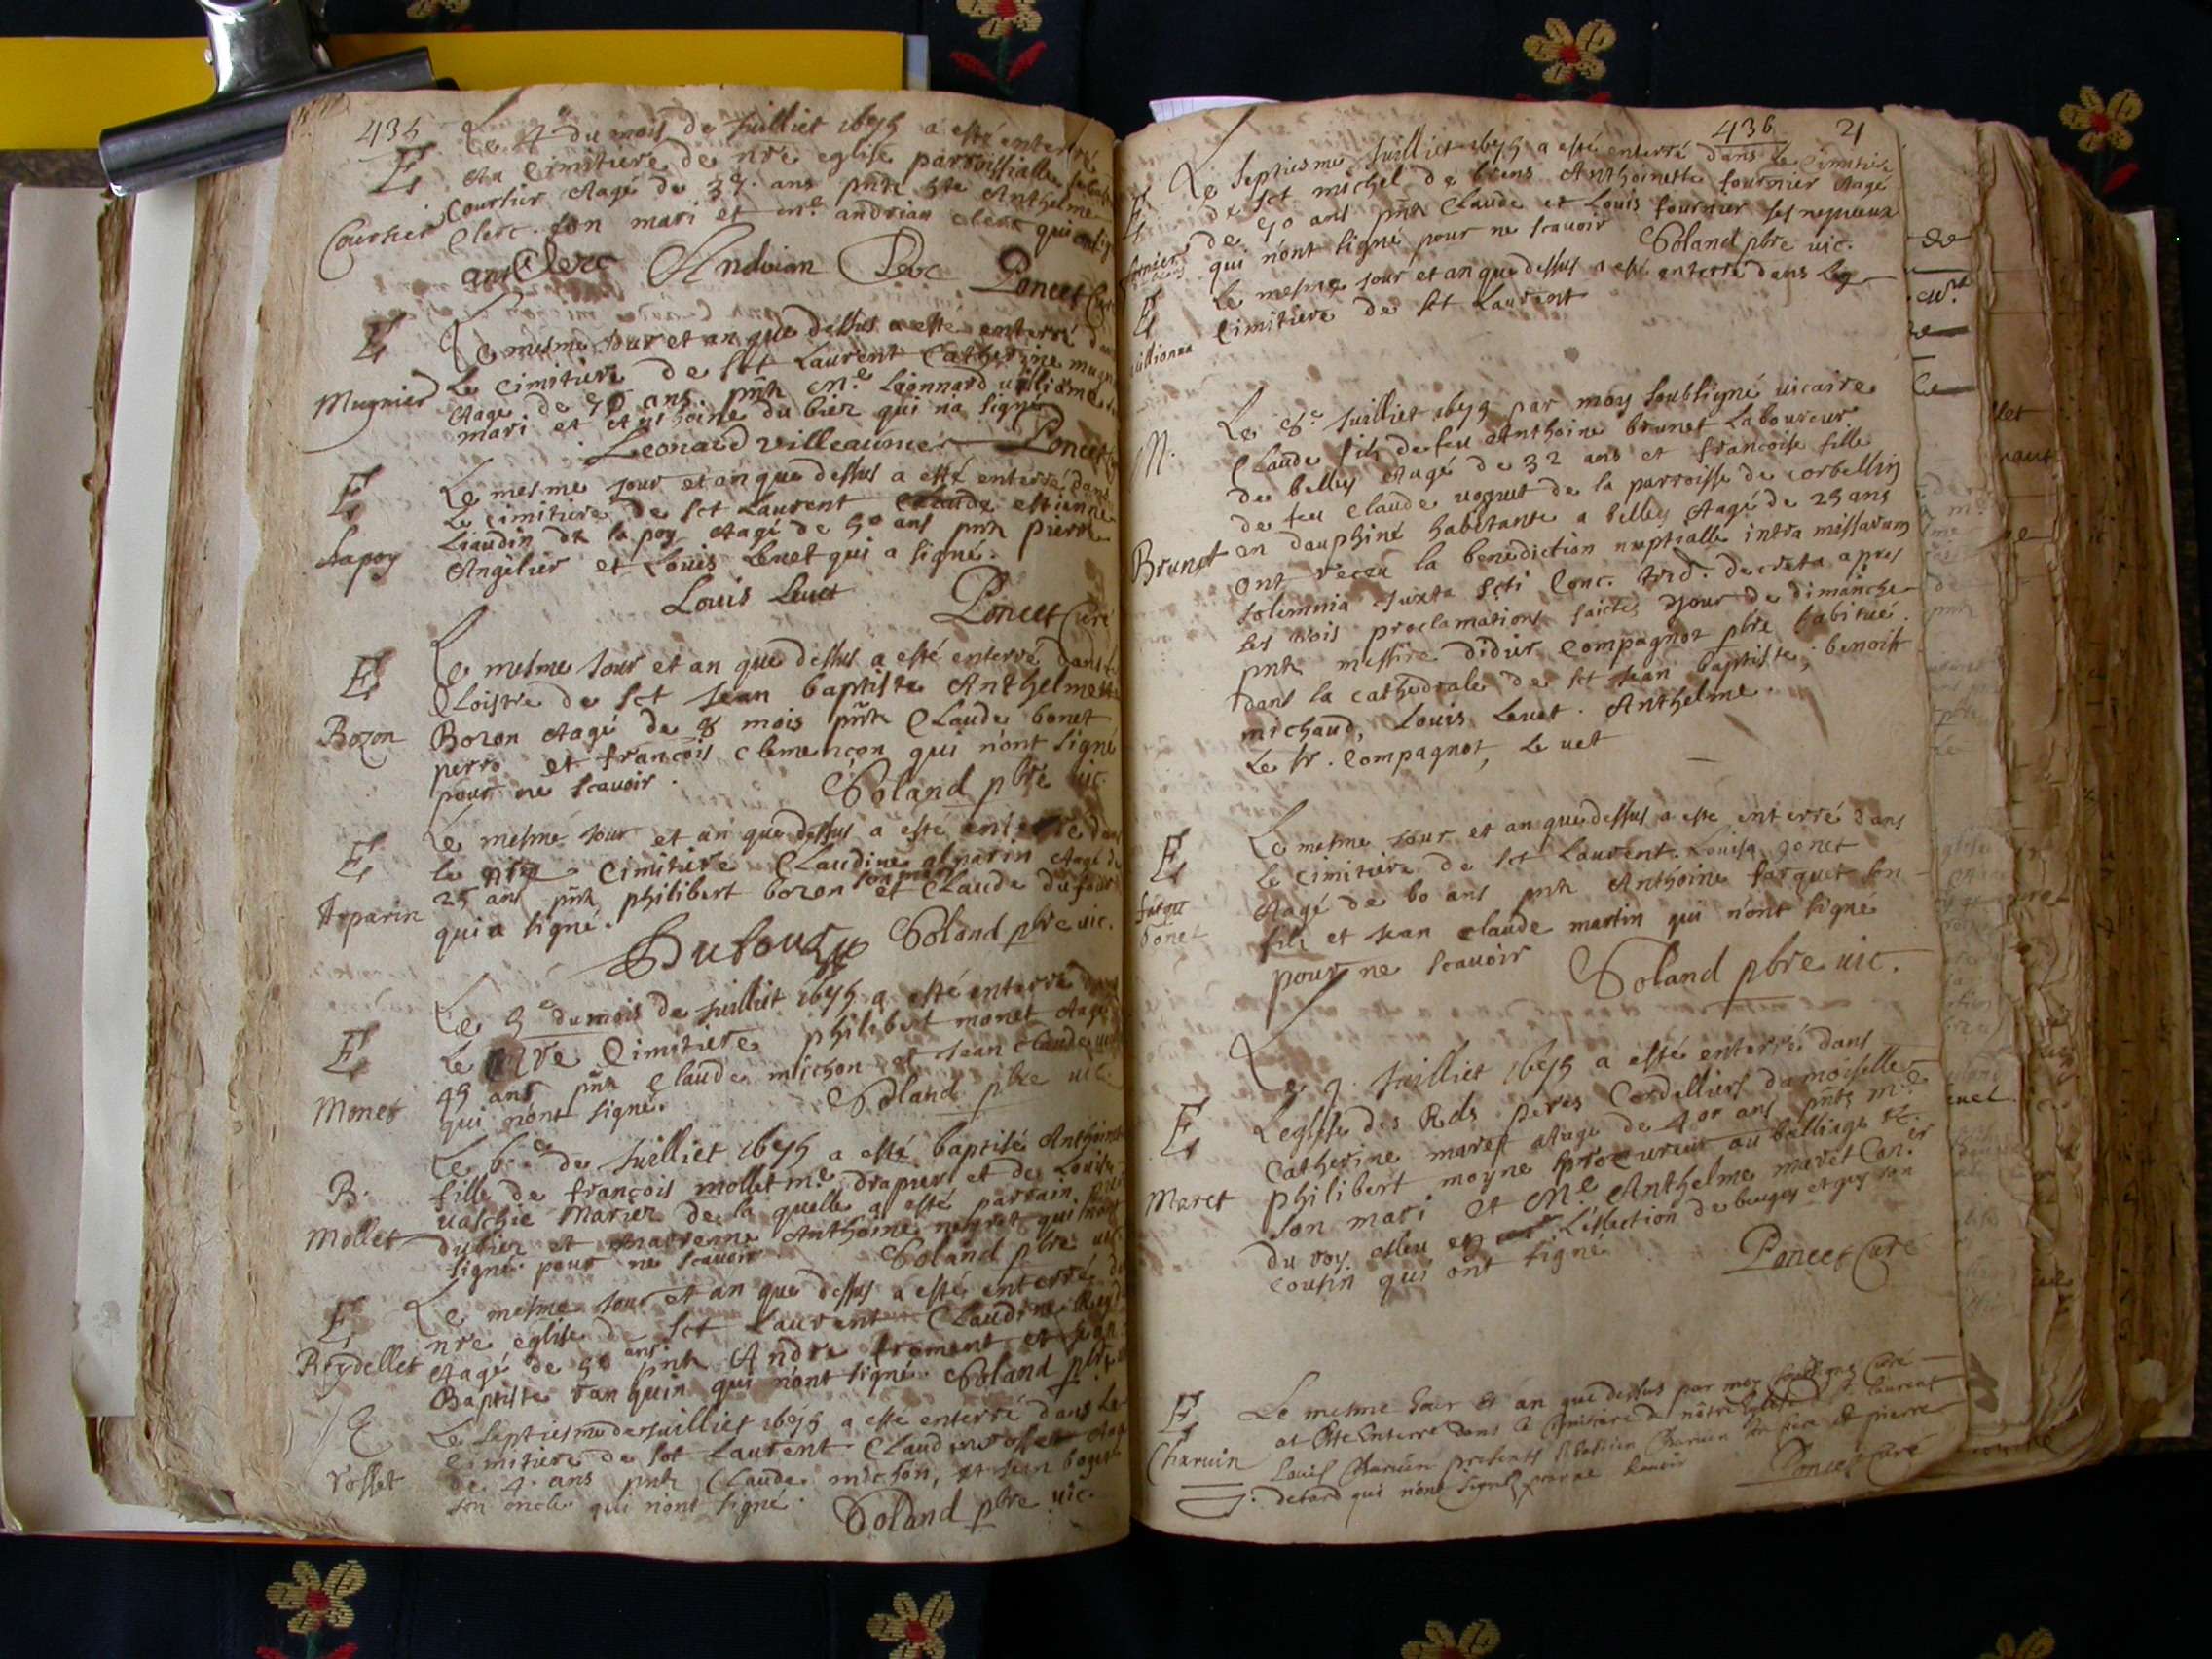 435
Le 4e du mois de Juilliet 1675 a esté enterré
E au Cimitiere de nre eglise parroissialle
Courtier Courtier Aagé de 37 ans pnts hte Anthelme
Clerc son mari et me andrian clerc qui
Clerc Andrian Clerc Poncet Curé
E Le mesme jour et an que dessus a esté enterré dans
Mugnier Le Cimitiere de sct Laurent Catherine
Aagé de 50 ans pnts me Leonnard
mari et Anthoine du bier qui na signé
Leonard villeaumier Poncet
E Le mesme jour et an que dessus a esté enterré dans
Le cimitiere de sct Laurent estienne
Lapoy Liaudin dt la poy Aagé de 50 ans pnts pierre
Angelier et Louis Levet qui a signé.
Louis Levet Poncet Curé
E Le mesme Jour et an que dessus a esté enterré dans le
Cloistre de sct Jean baptiste Anthelmette
Bozon Bozon Aagé de 8 mois pnts Claude bonet
perro et françois clemençon qui n'ont signé
pour ne scavoir. Soland pbre vic.
E Le mesme Jour et an que dessus a esté enterré dans
le nre Cimitiere Claudine alparin Aagé de
Arparin 25 ans pnts philibert bozon son mari et Claude dufour
qui a signé.
Dufour Soland pbre vic.
E Le 5e du mois de Juilliet 1675 a esté enterré dans
Le nre Cimitiere philibert monet Aagé
Monet 45 ans pnts Claude michon et Jean Claude
qui n'ont signé. Soland pbre vic.
Le 6e de Juilliet 1675 a esté baptisé Anthoinette
B. fille de françois mollet me drapier et de Louise
Mollet Marier de la quelle a esté parrain
dubier et marrenne Anthoine qui n'ont
signé pour ne scavoir Soland pbre vic.
E Le mesme Jour et an que dessus a esté enterré
nre eglise de sct Laurent Claudine
Reydellet Aagé de 50 ans pnts Andre froment et Jean
Baptiste Ranquin qui n'ont signé. Soland pbre
E Le septiesme de Juilliet 1675 a esté enterré dans Le
Cimitiere de sct Laurent Claud rosset
Rosset de 4 ans pnts Claude michon, et Jean
son oncle qui n'ont signé. Soland pbre vic.
436 21
Le septiesme Juilliet 1675 a esté enterré dans Le Cimitiere
E de sct michel de biens Anthoinette fournier Aagé
de 50 ans pnts Claude et Louis fournier ses nepveux
fornier qui n'ont signé pour ne scavoir Soland pbre vic.
E Le mesme Jour et an que dessus a esté enterré dans Le
Cimitiere de sct Laurent
Le 8e Juilliet 1675 par moy soubsigné vicaire
M. Claude fils de feu Anthoine brunet Laboureur
de belley Aagé de 32 ans et françoise fille
de feu Claude vognet de la parroisse de corbellin
Brunet en dauphiné habitante a belley Aagé de 25 ans
ont receu la benediction nuptialle intra missarum
solemnia Juxta Scti Conc. Trid. decreta apres
les trois proclamations faictes Jour de dimanche
pnts messire didier Compagnot pbre habitué
dans la cathedrale de sct Jean baptiste, benoist
michaud, Louis Levet. Anthelme.
Le sr. Compagnot, Levet
Le mesme Jour et an que dessus a esté enterré dans
E Le Cimitiere de sct Laurent. Louise gonet
Aagé de 60 ans pnts Anthoine farquet son
fils et Jean claude martin qui n'ont signé
pour ne scavoir Soland pbre vic.
Le 9. Juilliet 1675 a esté enterré dans
E Leglise des Rds peres Cordelliers damoiselle
Catherine maret Aagé de 40 ans pnts me
Maret philibert moyne procureur au balliage &c.
son mari et Me Anthelme maret Coner
du roy esleu en L'eslection de beugey et son
cousin qui ont signé Poncet Curé
E Le mesme Jour et an que dessus par moy soubsigné Curé
at esté enterré dans le Cimitiere de nostre Eglise St laurent
Charvin Louis Charvin presents Charvin son frere et pierre
detard qui n'ont signés pour ne scavoir Poncet Curé